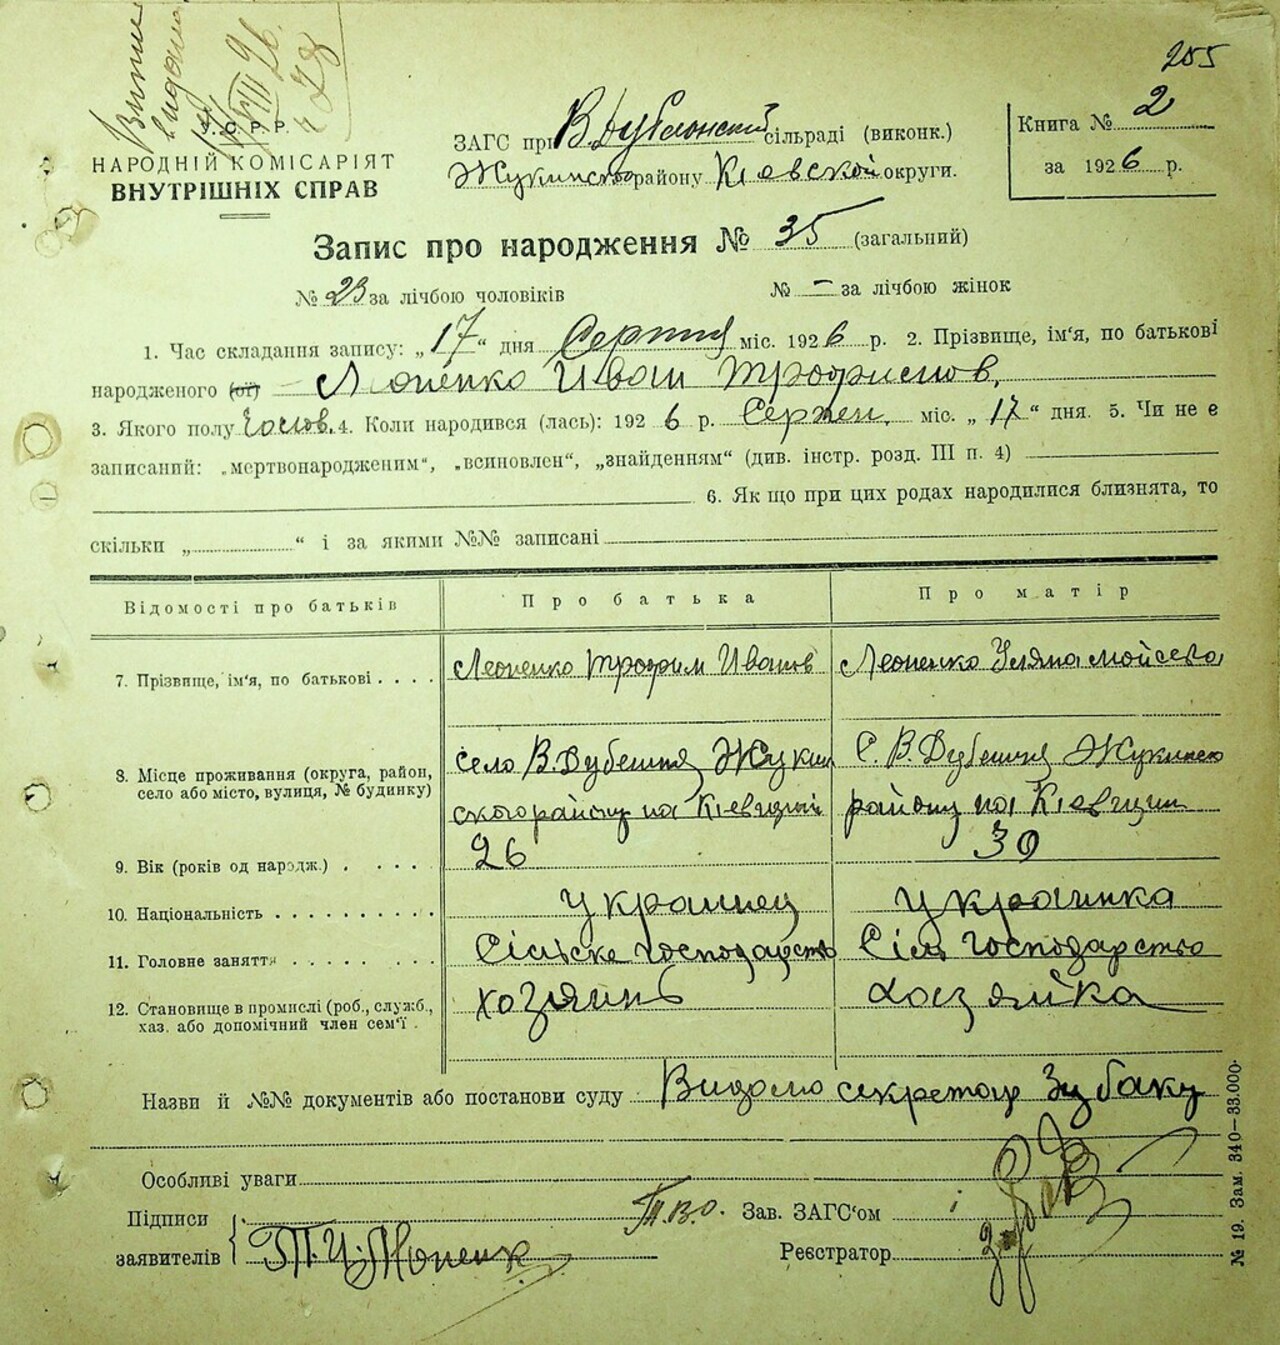 205
Випис
видано
26
У.С.Р.Р.
НАРОДНІЙ КОМІСАРІЯТ
ВНУТРІШНІХ СПРАВ
ЗАГС при В. Дубечонский сільраді (виконк.)
Жукинсько району Кіевской округи.
Книга № 2
за 1926 р.
Запис про народження № 35 (загальний)
№ 23 за лічбою чоловіків № – за лічбою жінок
1. Час складання запису: „17“ дня Серпня міс. 1926 р. 2. Прізвище, ім‘я, по батькові
народженого (ої) Леоненко Иван Трофимов.
3. Якого полу Чолов. 4. Коли народився (лась): 1926 р. Серпен. міс. „17“ дня. 5. Чи не є
записаний: „мертвонародженим“, „всиновлен“, „знайденням“ (див. інстр. розд. III п. 4)
6. Як що при цих родах народилися близнята, то
скільки „ “ і за якими №№ записані
Відомості про батьків Про батька Про матір
7. Прізвище, ім‘я, по батькові . . . . Леоненко Трофим Иванов Леоненко Уляна Мойсеева
8. Місце проживання (округа, район, село В. Дубешня Жукин С. В. Дубешня Жукинско
село або місто, вулиця, № будинку) ского району на Кіевщині району на Кіевщин
9. Вік (років од народж.) . . . . 26 30
10. Національність . . . . . . . . . . Украинец Украинка
11. Головне заняття . . . . . . . . Сільске господарство Сіль господарство
12. Становище в промислі (роб., служб., хозяинь хозяйка
хаз. або допомічний член сем‘ї .
Назви й №№ документів або постанови суду Видано секретар Зубаку
Особливі уваги
Підписи
заявителів Т. И. Леоненк
Т.в.о. Зав. ЗАГС‘ом
Реєстратор
№ 19. Зам. 340—33.000.